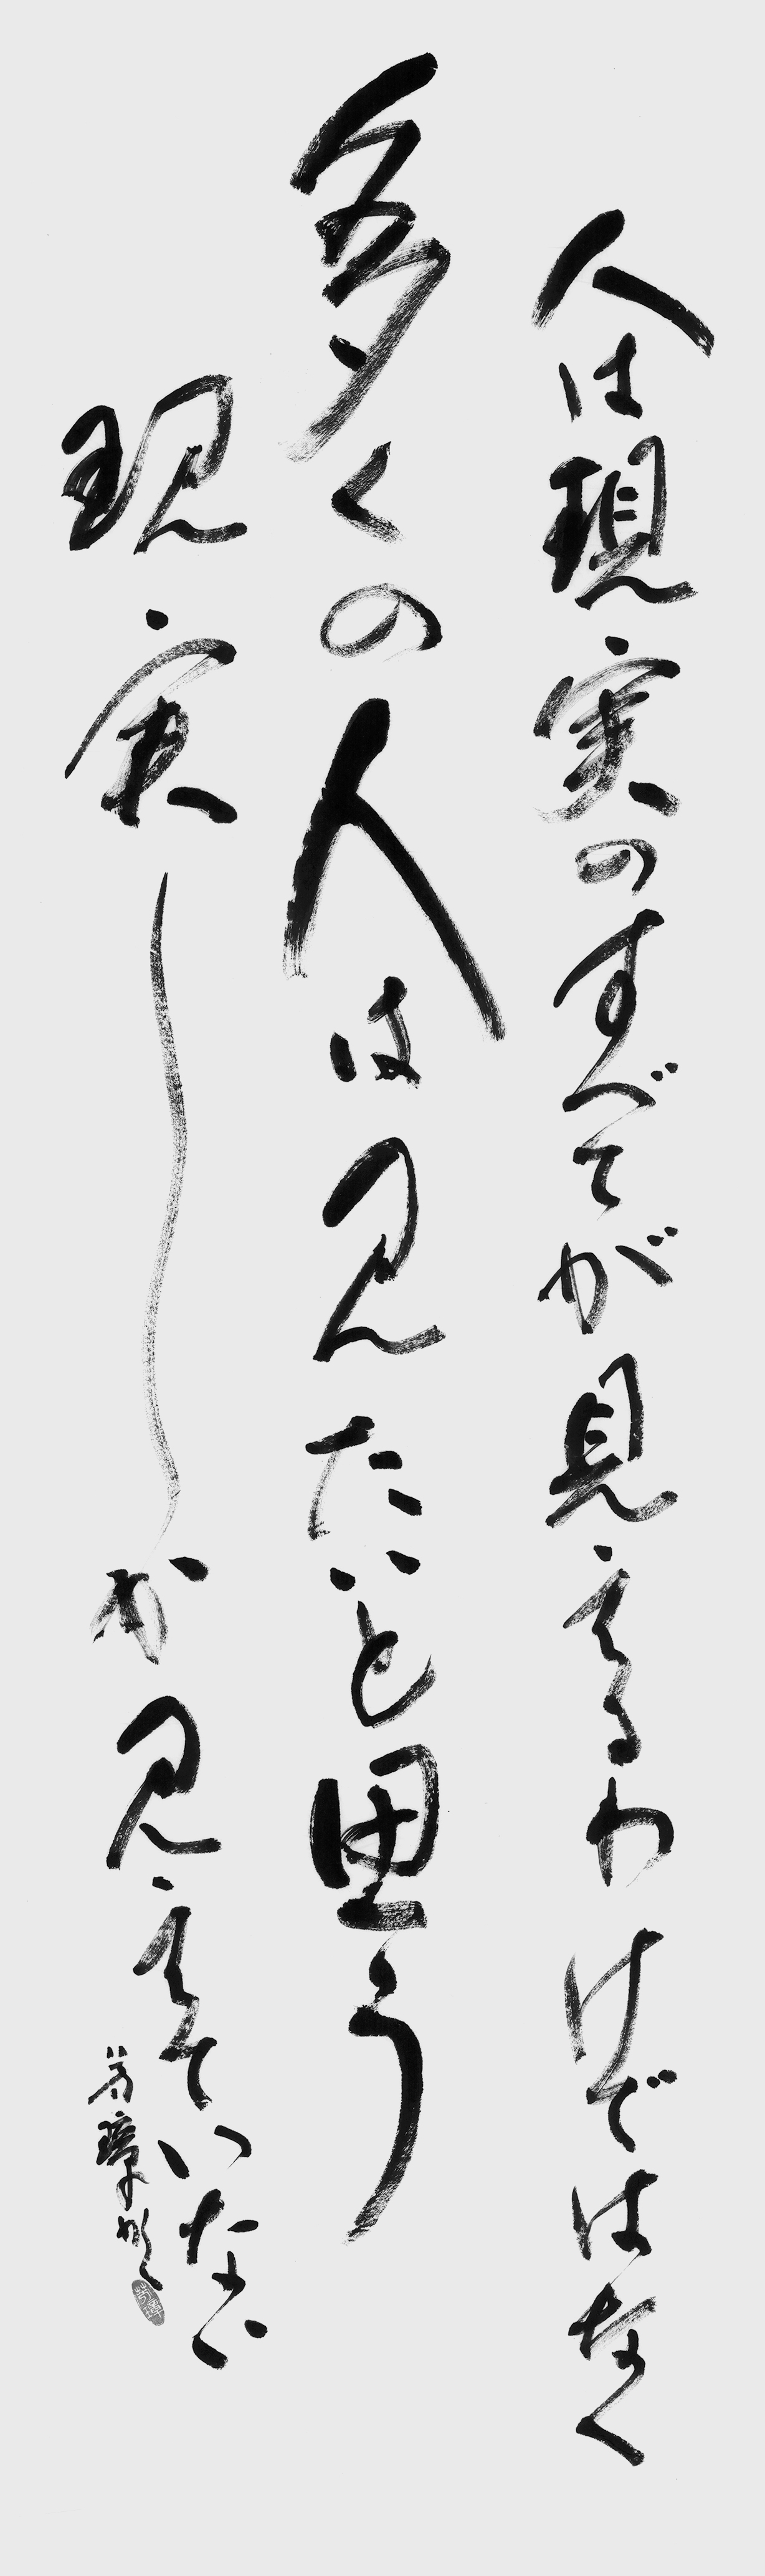 人は現実のすべてが見えるわけではなく
多くの人は見たいと思う
現実しか見えていない